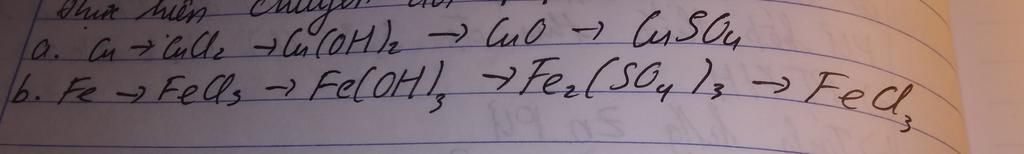 thực hiện chuyển đổi
a. Cu → CuCl2 → Cu(OH)2 → CuO → CuSO4
b. Fe → FeCl3 → Fe(OH)3 → Fe2(SO4)3 → FeCl3